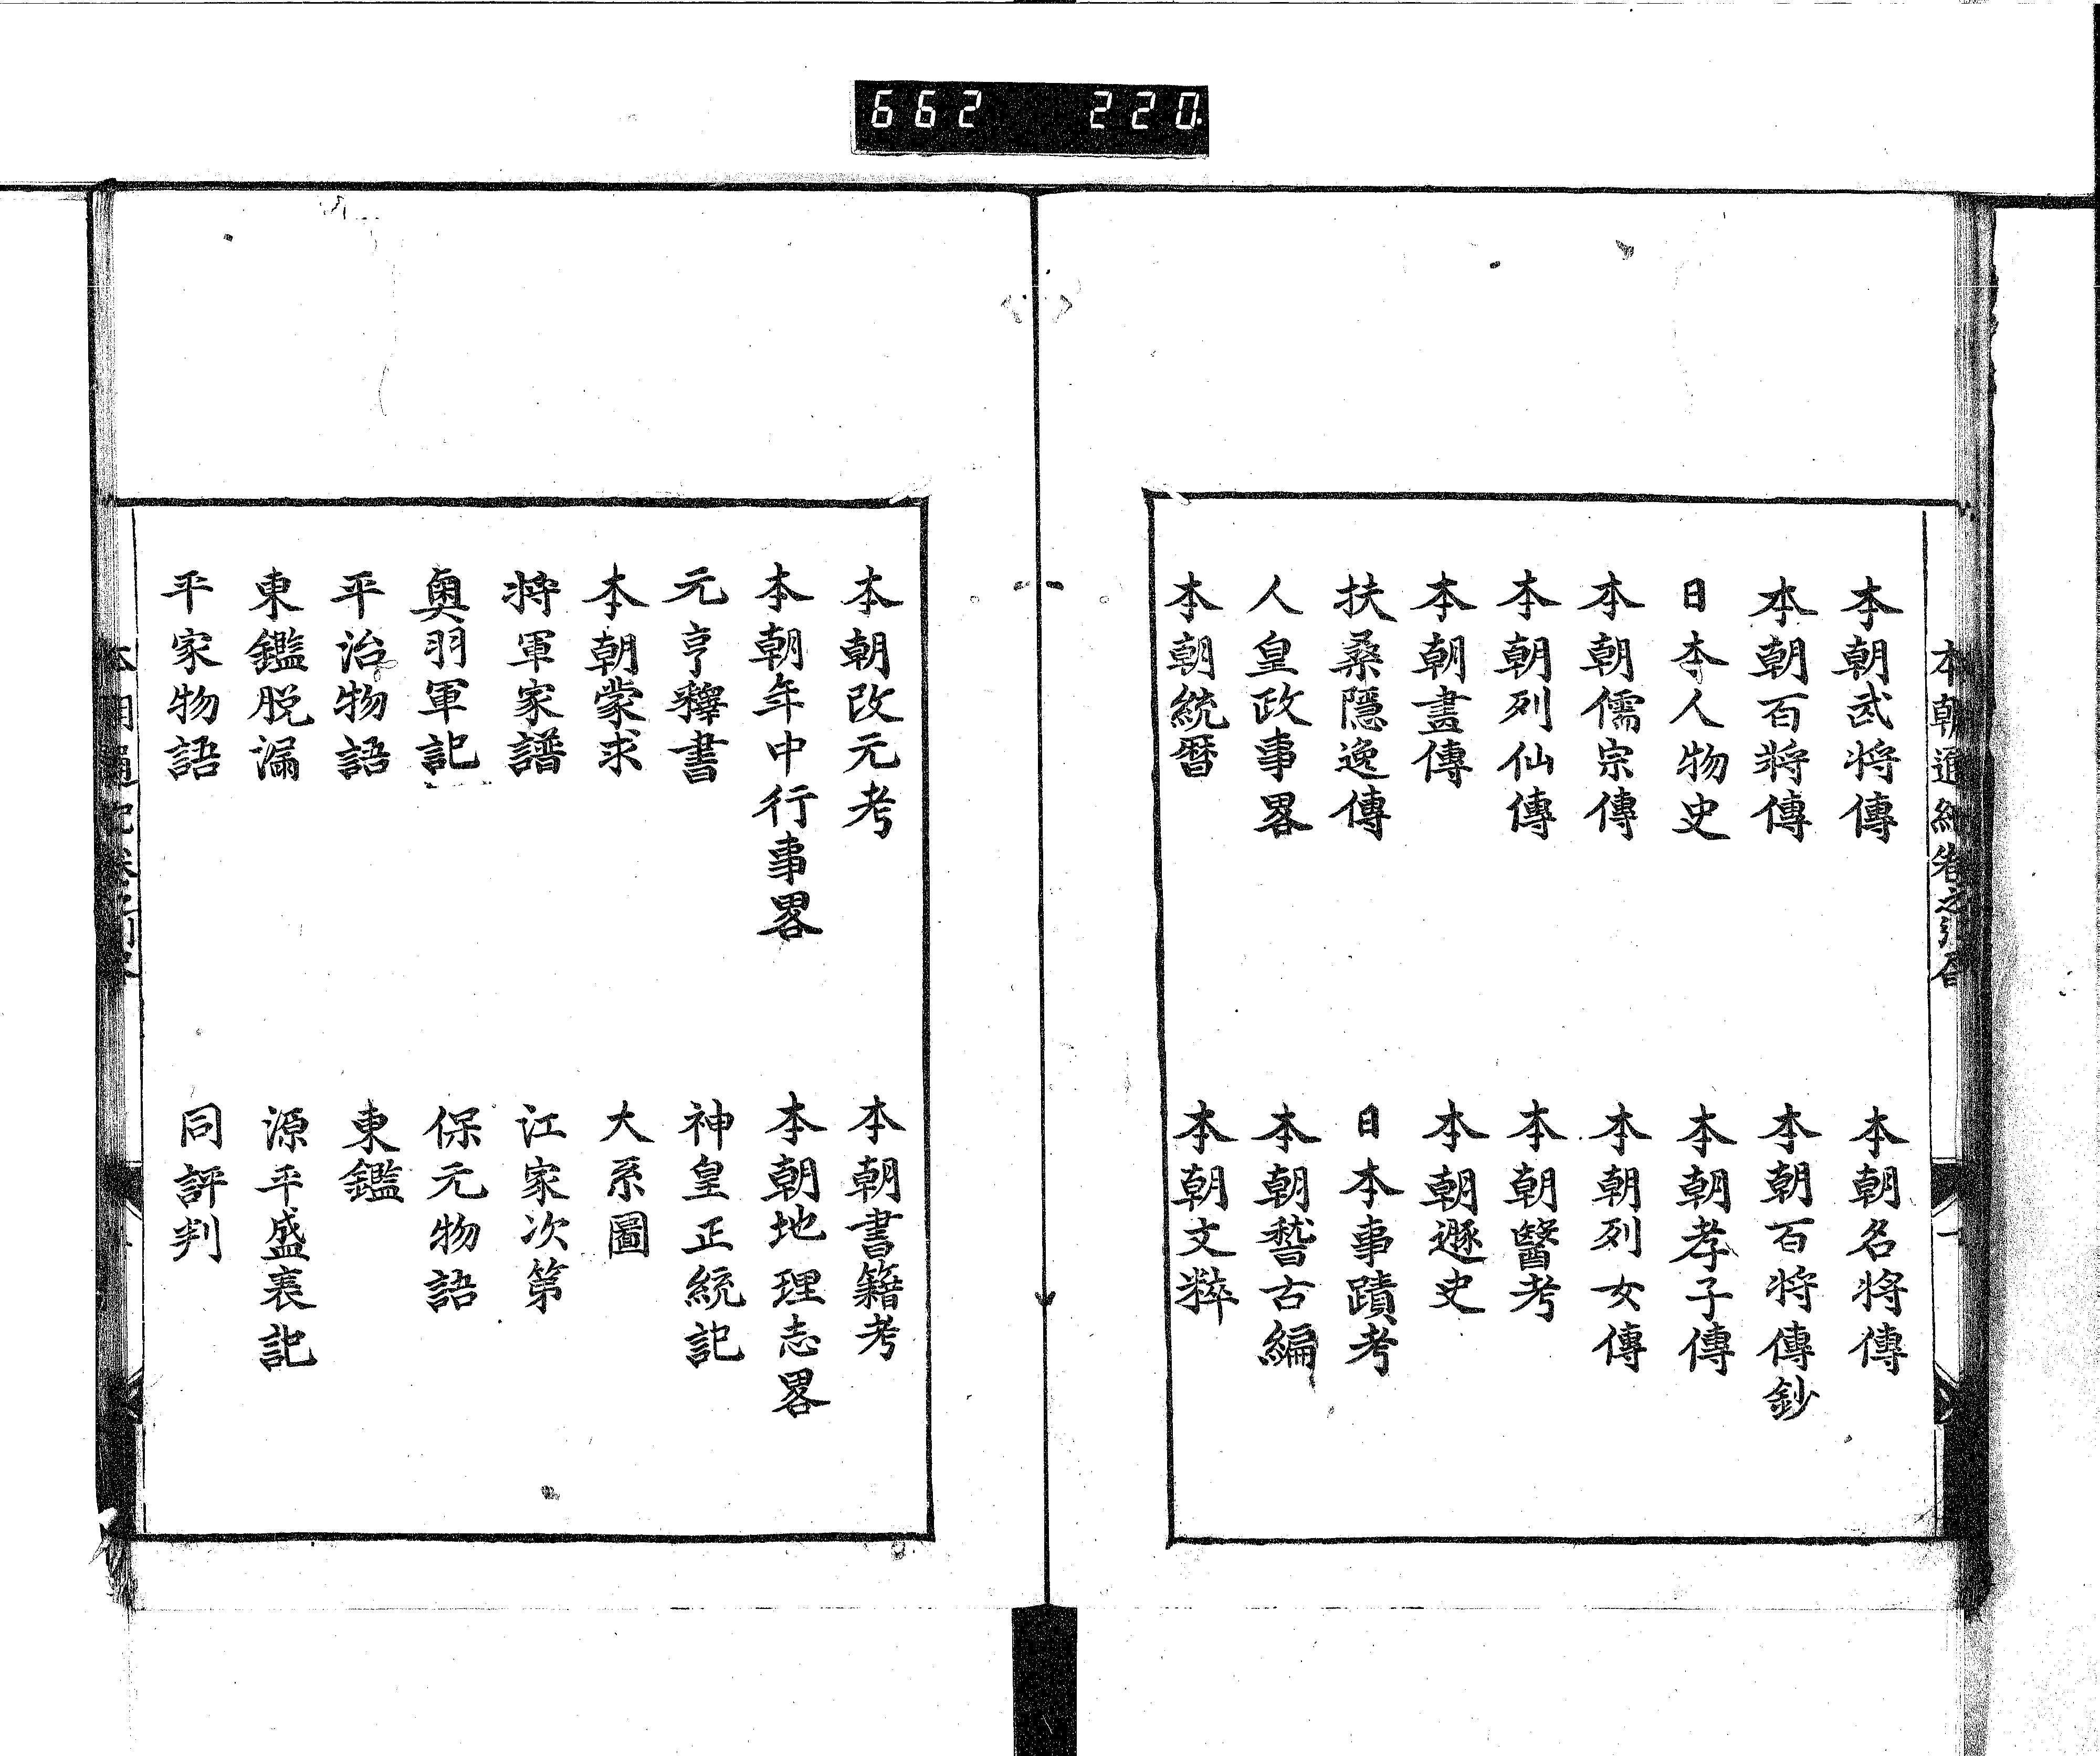 662 220
本朝武将傳
本朝名将傳
本朝百將傳
本朝百将傳鈔
日本人物史
本朝孝子傳
本朝儒宗傳
本朝列女傳
本朝列仙傳
本朝醫考
本朝畫傳
本朝遯史
扶桑隱逸傳
日本事蹟考
人皇政事畧
本朝稽古編
本朝統曆
本朝文粹
本朝改元考
本朝書籍考
本朝年中行事畧
本朝地理志畧
元亨釋書
神皇正統記
本朝蒙求
大系圖
将軍家譜
江家次第
奥羽軍記
保元物語
平治物語
東鑑
東鑑脱漏
源平盛衰記
平家物語
同評判